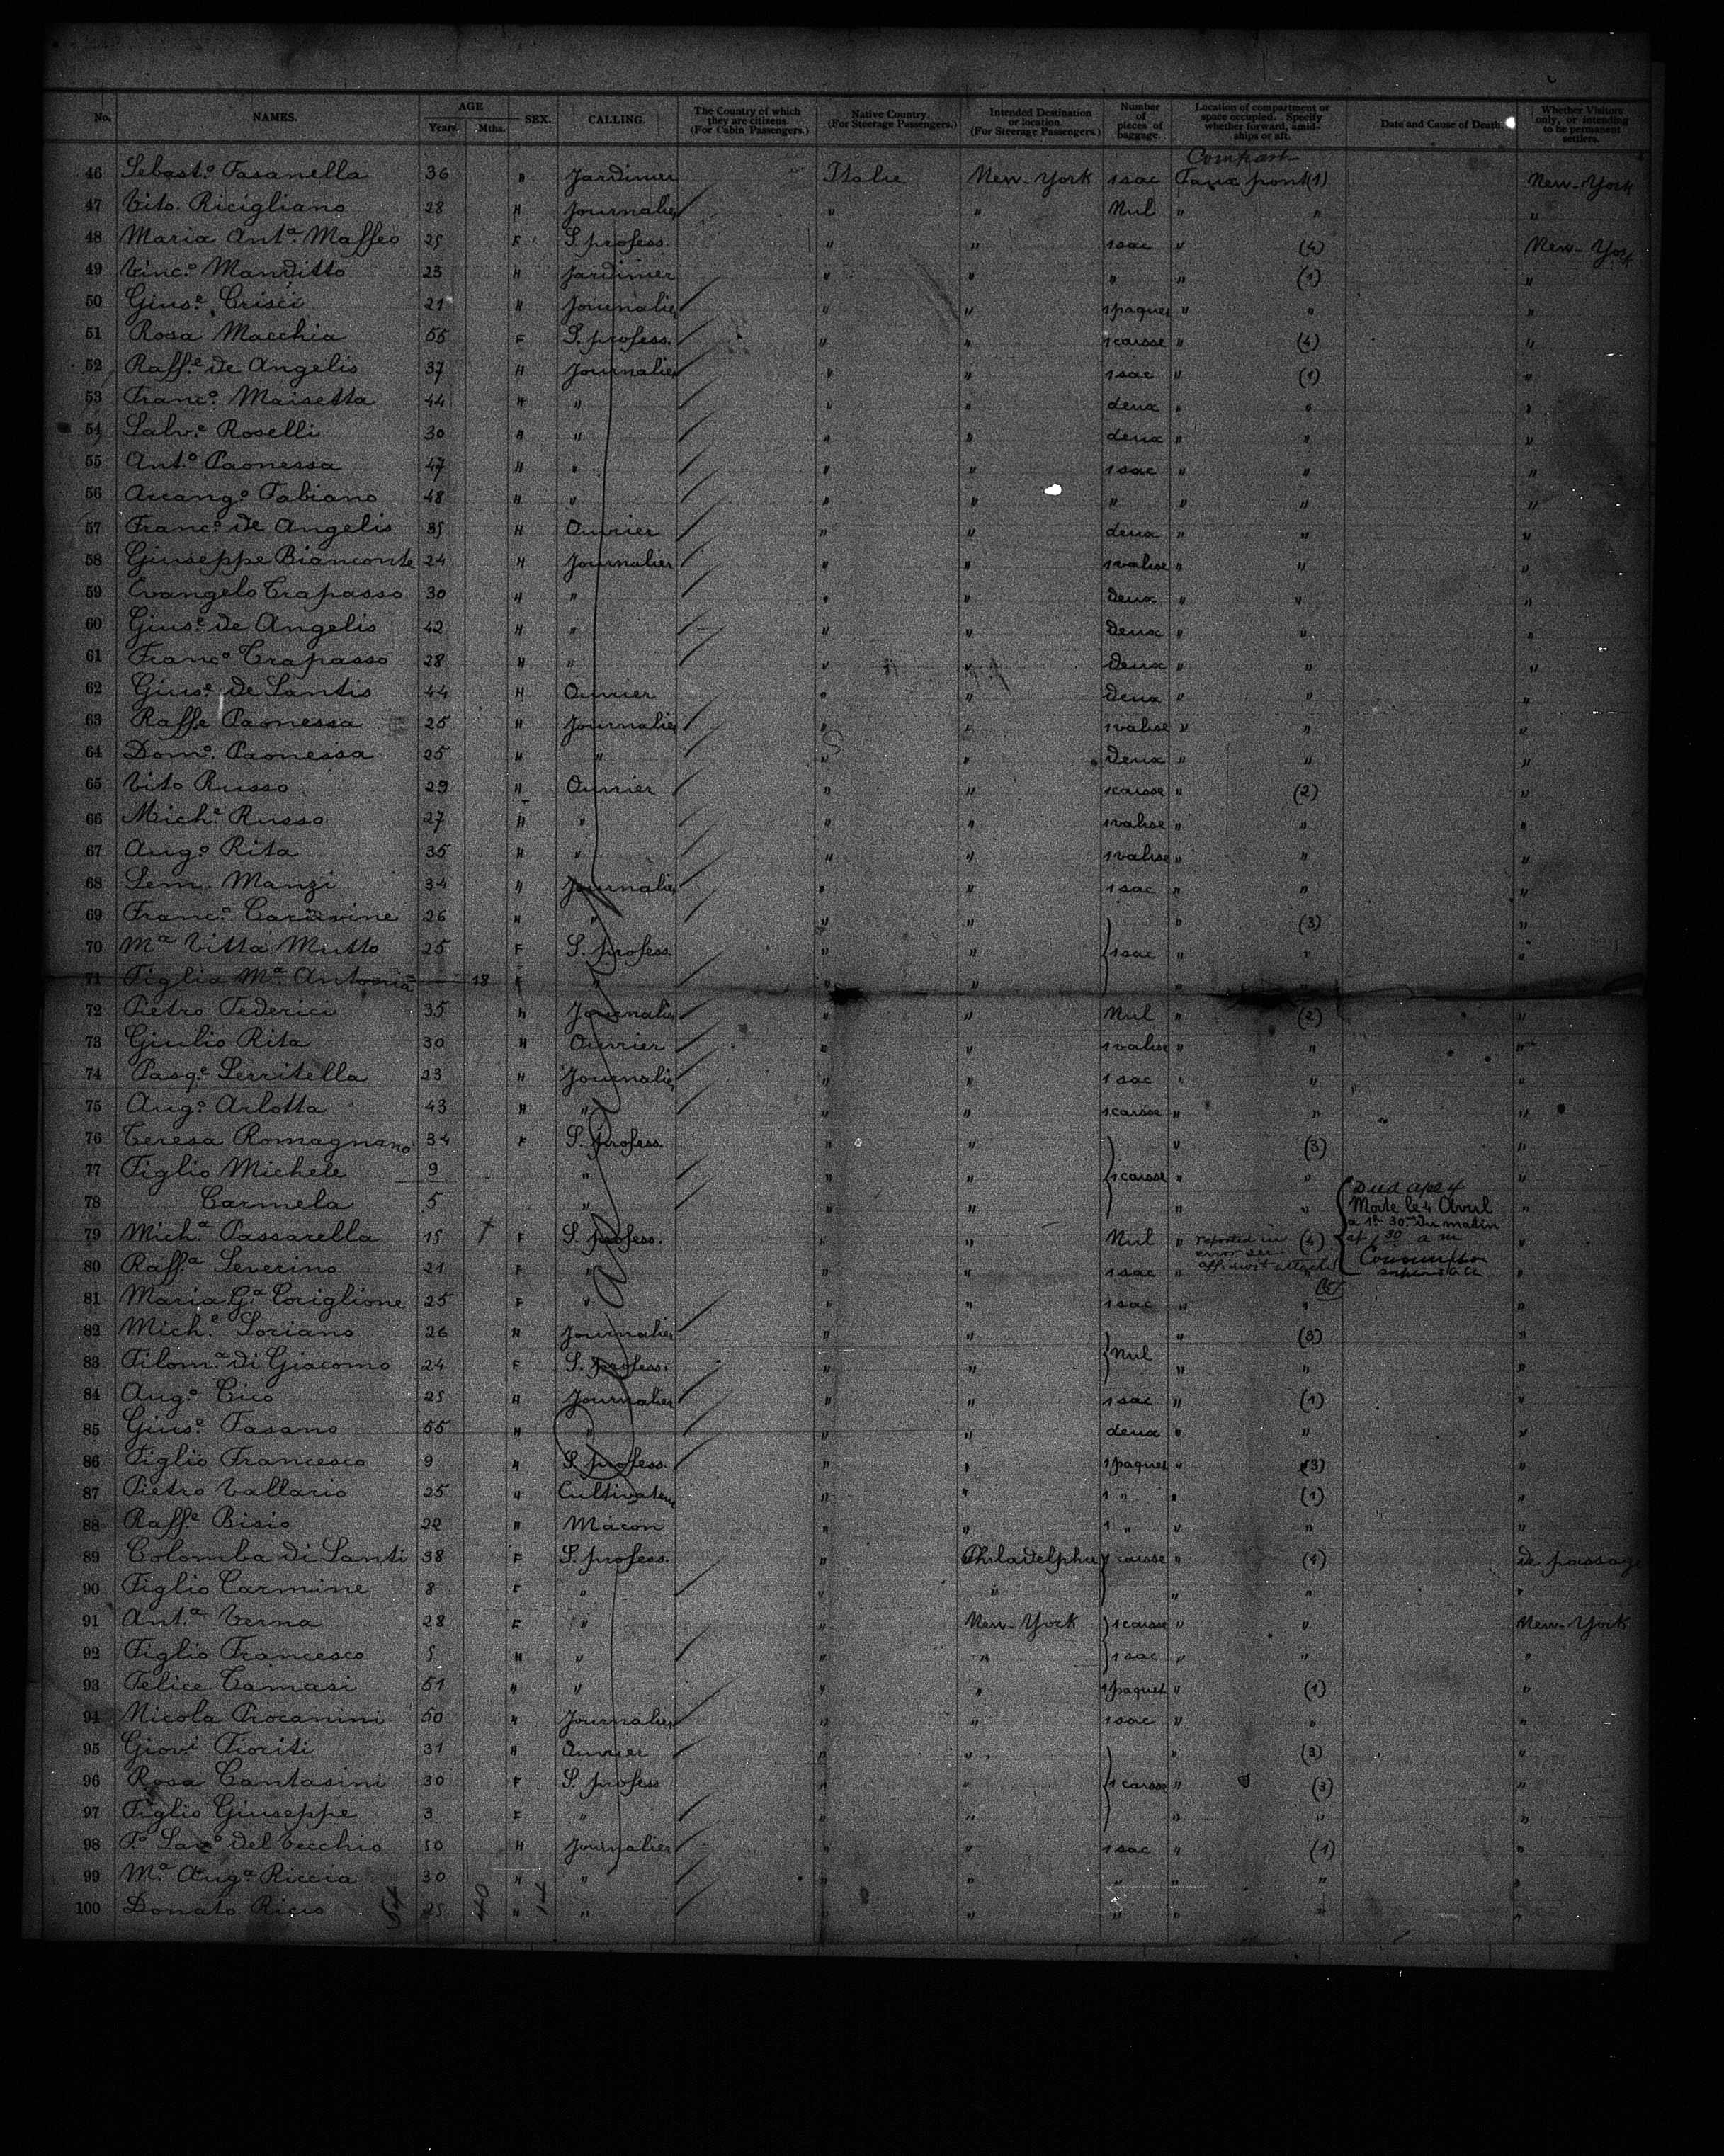 No. NAMES. AGE Years. Mths. SEX. CALLING. The Country of which they are citizens. (For Cabin Passengers.) Native Country. (For Steerage Passengers.) Intended Destination or location. (For Steerage Passengers.) Number of pieces of baggage. Location of compartment or space occupied. Specify whether forward, amidships or aft. Date and Cause of Death. Whether Visitors only, or intending to be permanent settlers.
Compart
46 Sebast.o Fasanella 36 H Jardinier Italie New-York 1 sac Faux pont (1) New-York
47 Vito. Ricigliano 28 H Journalier " " Nul " " "
48 Maria Ant.a Maffeo 25 F S. profess. " " 1 sac " (4) New-York
49 Vinc.o Manditto 23 H Jardinier " " " " (1) "
50 Gius.e Crisci 21 H Journalier " " 1 paquet " " "
51 Rosa Macchia 55 F S. profess. " " 1 caisse " (4) "
52 Raff.e de Angelis 37 H Journalier " " 1 sac " (1) "
53 Franc.o Maisetta 44 H " " " deux " " "
54 Salv.e Roselli 30 H " " " deux " " "
55 Ant.o Paonessa 47 H " " " 1 sac " " "
56 Arcang.o Fabiano 48 H " " " " " " "
57 Franc.o de Angelis 35 H Ouvrier " " deux " " "
58 Giuseppe Bianconte 24 H Journalier " " 1 valise " " "
59 Evangelo Trapasso 30 H " " " Deux " " "
60 Gius.e de Angelis 42 H " " " Deux " " "
61 Franc.o Trapasso 28 H " " " Deux " " "
62 Gius.e de Santis 44 H Ouvrier " " Deux " " "
63 Raff.e Paonessa 25 H Journalier " " 1 valise " " "
64 Dom.o Paonessa 25 H " " " Deux " " "
65 Vito Russo 29 H Ouvrier " " 1 caisse " (2) "
66 Mich.e Russo 27 H " " " 1 valise " " "
67 Ang.o Rita 35 H " " " 1 valise " " "
68 Sem. Manzi 34 H Journalier " " 1 sac " " "
69 Franc.o 26 H " " " " (3) "
70 M.a Vitta Mutto 25 F S. profess. " " 1 sac " " "
71 Figlia M.a Antonia 18 F " " " " " "
72 Pietro Federici 35 H Journalier " " Nul " (2) "
73 Giulio Rita 30 H Ouvrier " " 1 valise " " "
74 Pasq.e Serritella 23 H Journalier " " 1 sac " " "
75 Ang.o Arlotta 43 H " " " 1 caisse " " "
76 Teresa Romagnano 34 F S. profess. " " " (3) "
77 Figlio Michele 9 " " " 1 caisse " " "
78 Carmela 5 " " " " " "
Died Apr 4
Morte le 4 Avril
a 1h 30m du matin
79 Mich.a Passarella 15 F S. profess. " " Nul " (4) "
reported in error see affidavit attached
at 1 30 a m
80 Raff.a Severino 21 F " " " 1 sac " "
81 Maria G.a Coriglione 25 F " " " 1 sac " " "
82 Mich.e Soriano 26 H Journalier " " " (3) "
83 Filom.a di Giacomo 24 F S. profess. " " Nul " " "
84 Ang.o Cico 25 H Journalier " " 1 sac " (1) "
85 Gius.e Fasano 55 H " " " deux " " "
86 Figlio Francesco 9 H S. profess. " " 1 paquet " (3) "
87 Pietro Vallario 25 H Cultivateur " " 1 " " (1) "
88 Raff.e Bisio 22 H Macon " " 1 " " " "
89 Colomba di Santi 38 F S. profess. " Philadelphia 1 caisse " (4) de passage
90 Figlio Carmine 8 F " " " " " "
91 Ant.a Verna 28 F " " New-York 1 caisse " " New-York
92 Figlio Francesco 5 H " " " 1 sac " " "
93 Felice Tamasi 51 H " " " 1 paquet " (1) "
94 Nicola Procanini 50 H Journalier " " 1 sac " " "
95 Giov.i Fioriti 31 H Ouvrier " " " (3) "
96 Rosa Cantasini 30 F S. profess " " 1 caisse " (3) "
97 Figlio Giuseppe 3 F " " " " " "
98 F.o Sav.o del Vecchio 50 H Journalier " " 1 sac " (1) "
99 M.a Ang.a Riccia 30 H " " " " " " "
100 Donato Ricio 25 H " " " " " " "
54 40 14